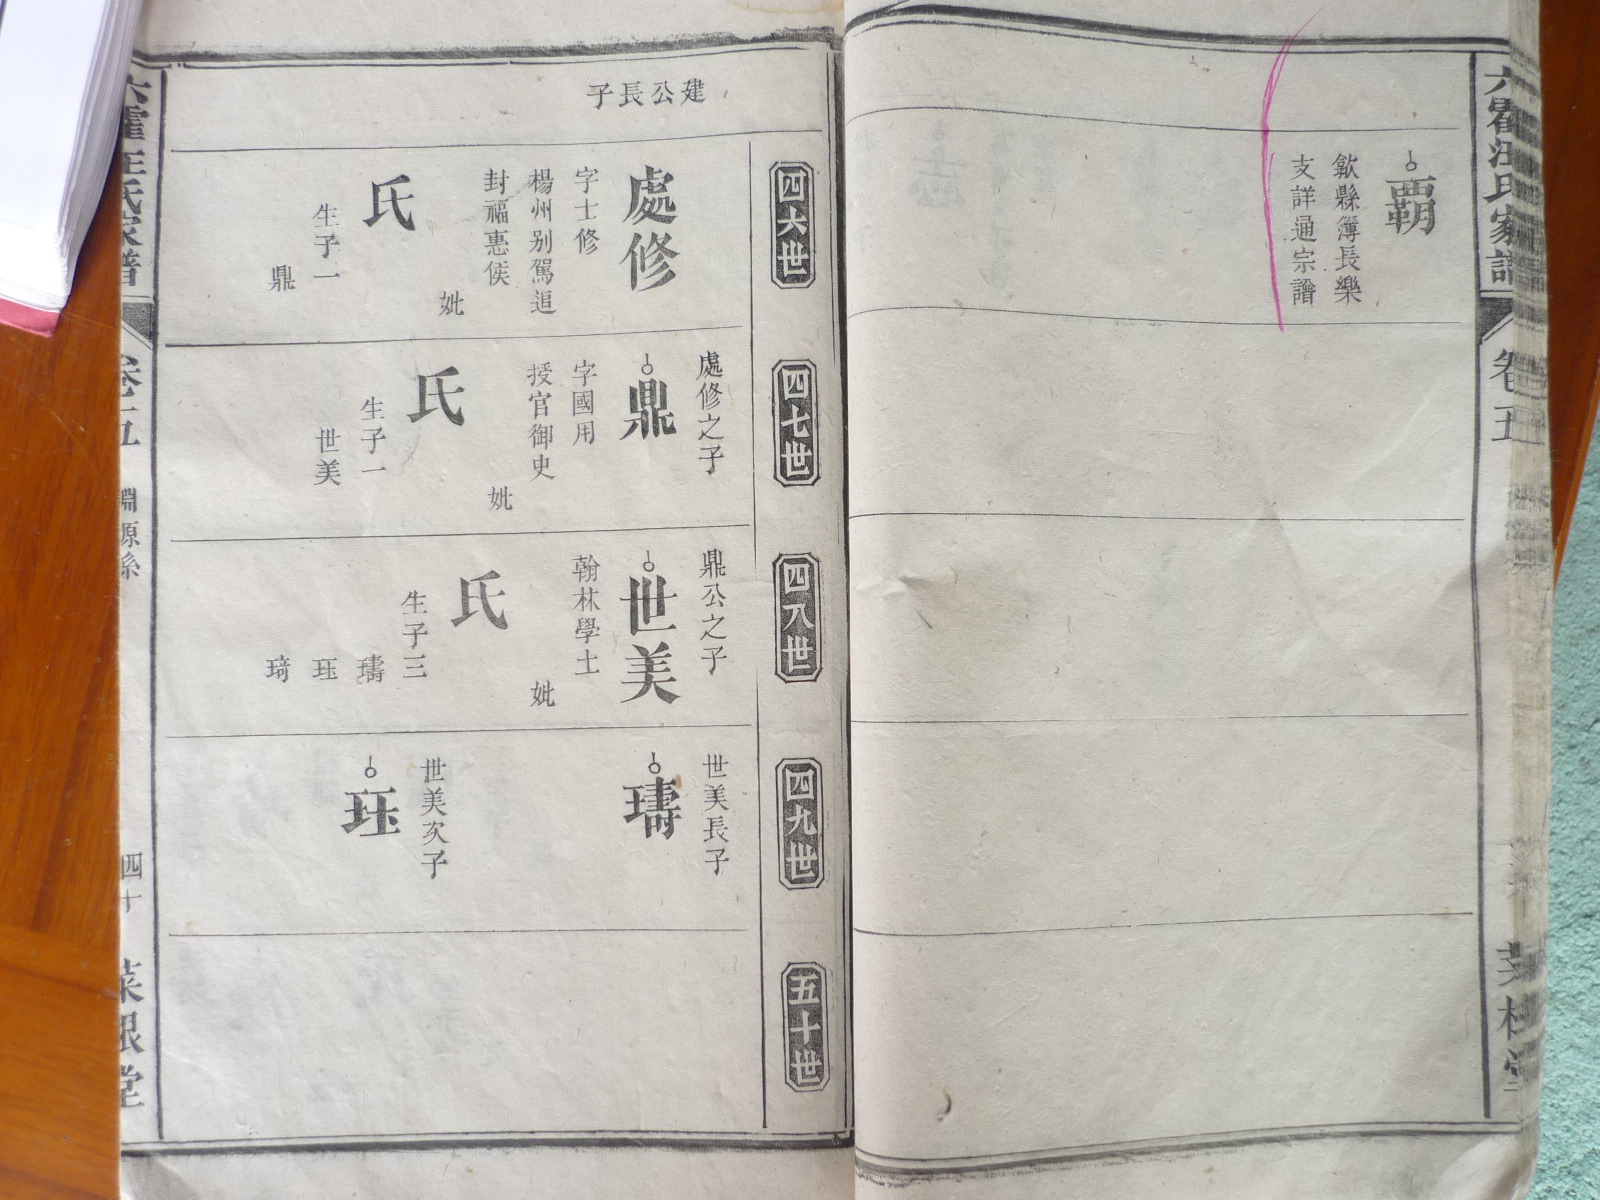 六霍汪氏家譜
卷五
菜根堂
霸
歙縣簿長樂
支詳通宗譜
四六世
四七世
四八世
四九世
五十世
建公長子
處修
字士修
楊州别駕追
封福惠侯
妣
氏
生子一
鼎
處修之子
鼎
字國用
授官御史
妣
氏
生子一
世美
鼎公之子
世美
翰林學士
妣
氏
生子三
璹
珏
琦
世美長子
璹
世美次子
珏
六霍汪氏家譜
卷五
淵源系
四十
菜根堂